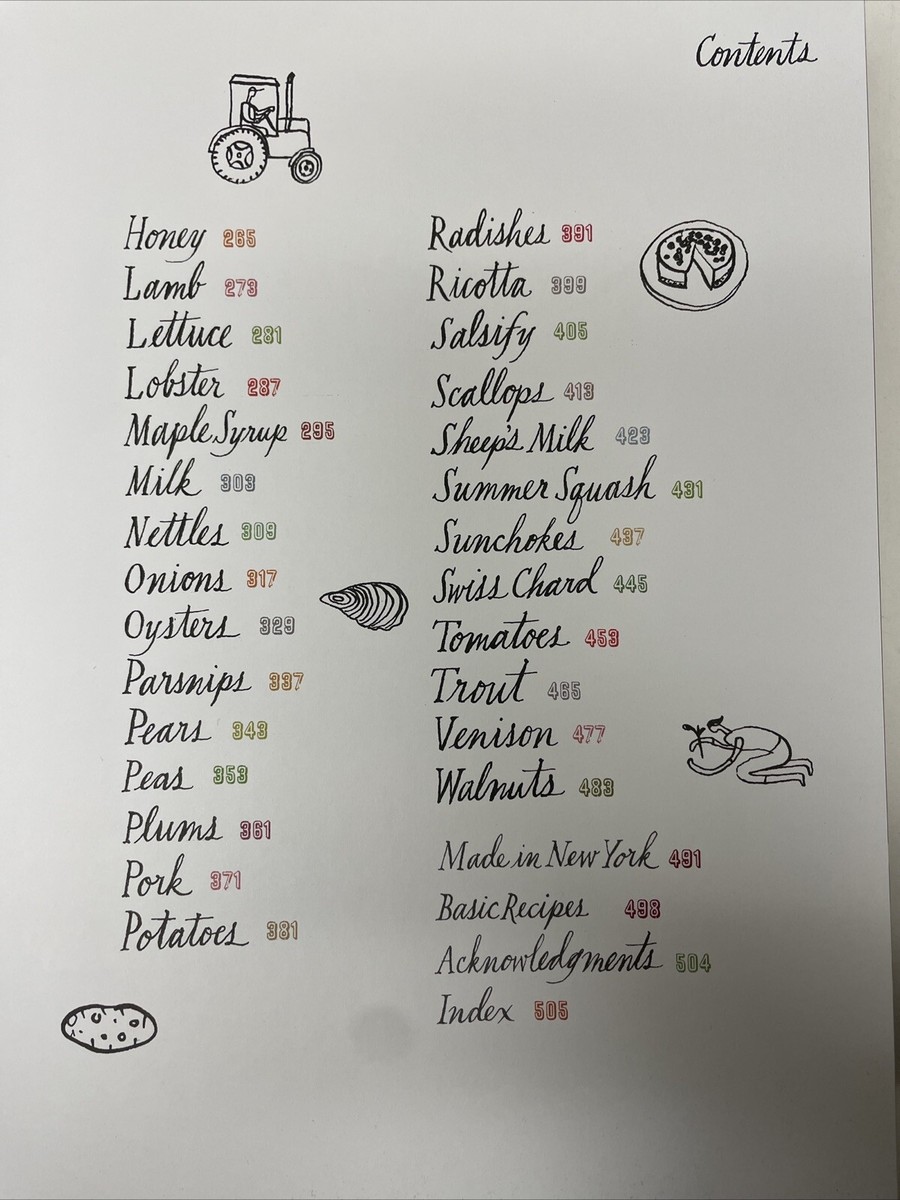 Contents
Honey 265
Lamb 273
Lettuce 281
Lobster 287
Maple Syrup 295
Milk 303
Nettles 309
Onions 317
Oysters 329
Parsnips 337
Pears 343
Peas 353
Plums 361
Pork 371
Potatoes 381
Radishes 391
Ricotta 399
Salsify 405
Scallops 413
Sheep's Milk 423
Summer Squash 431
Sunchokes 437
Swiss Chard 445
Tomatoes 453
Trout 465
Venison 477
Walnuts 483
Made in New York 491
Basic Recipes 498
Acknowledgments 504
Index 505